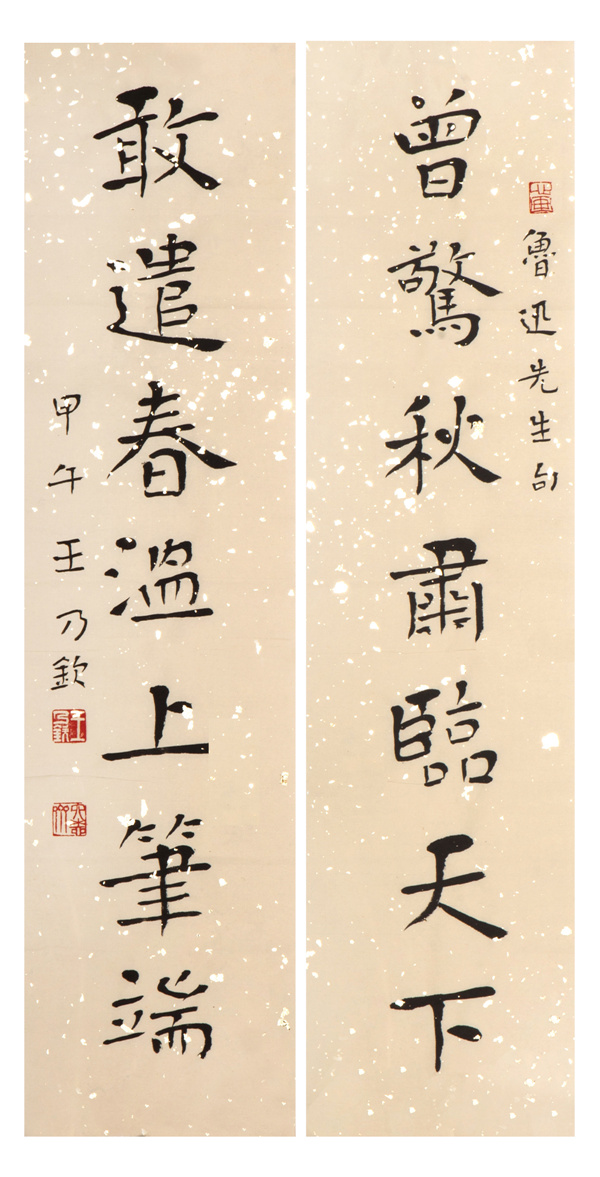 魯迅先生句
曾驚秋肅臨天下
敢遣春溫上筆端
甲午王乃欽
王乃欽